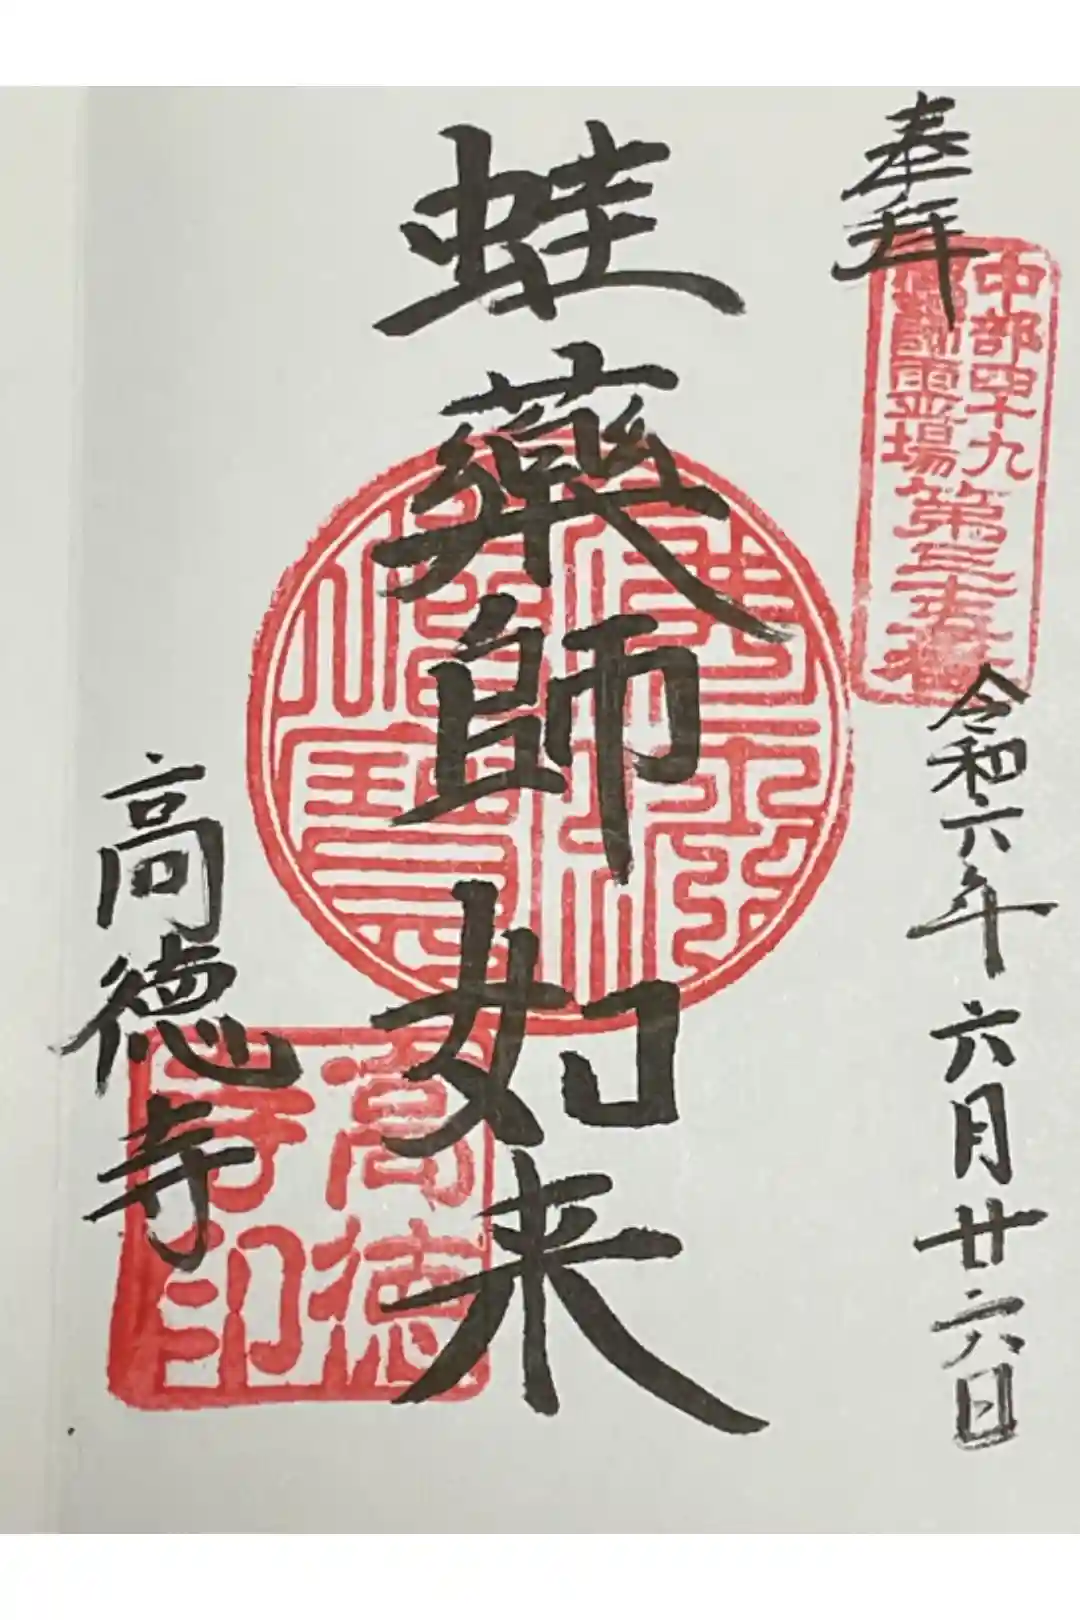 奉拝
中部四十九
薬師霊場
第三十五番
令和六年六月廿六日
蛙薬師如来
佛法僧寶
高徳寺
高徳
寺印